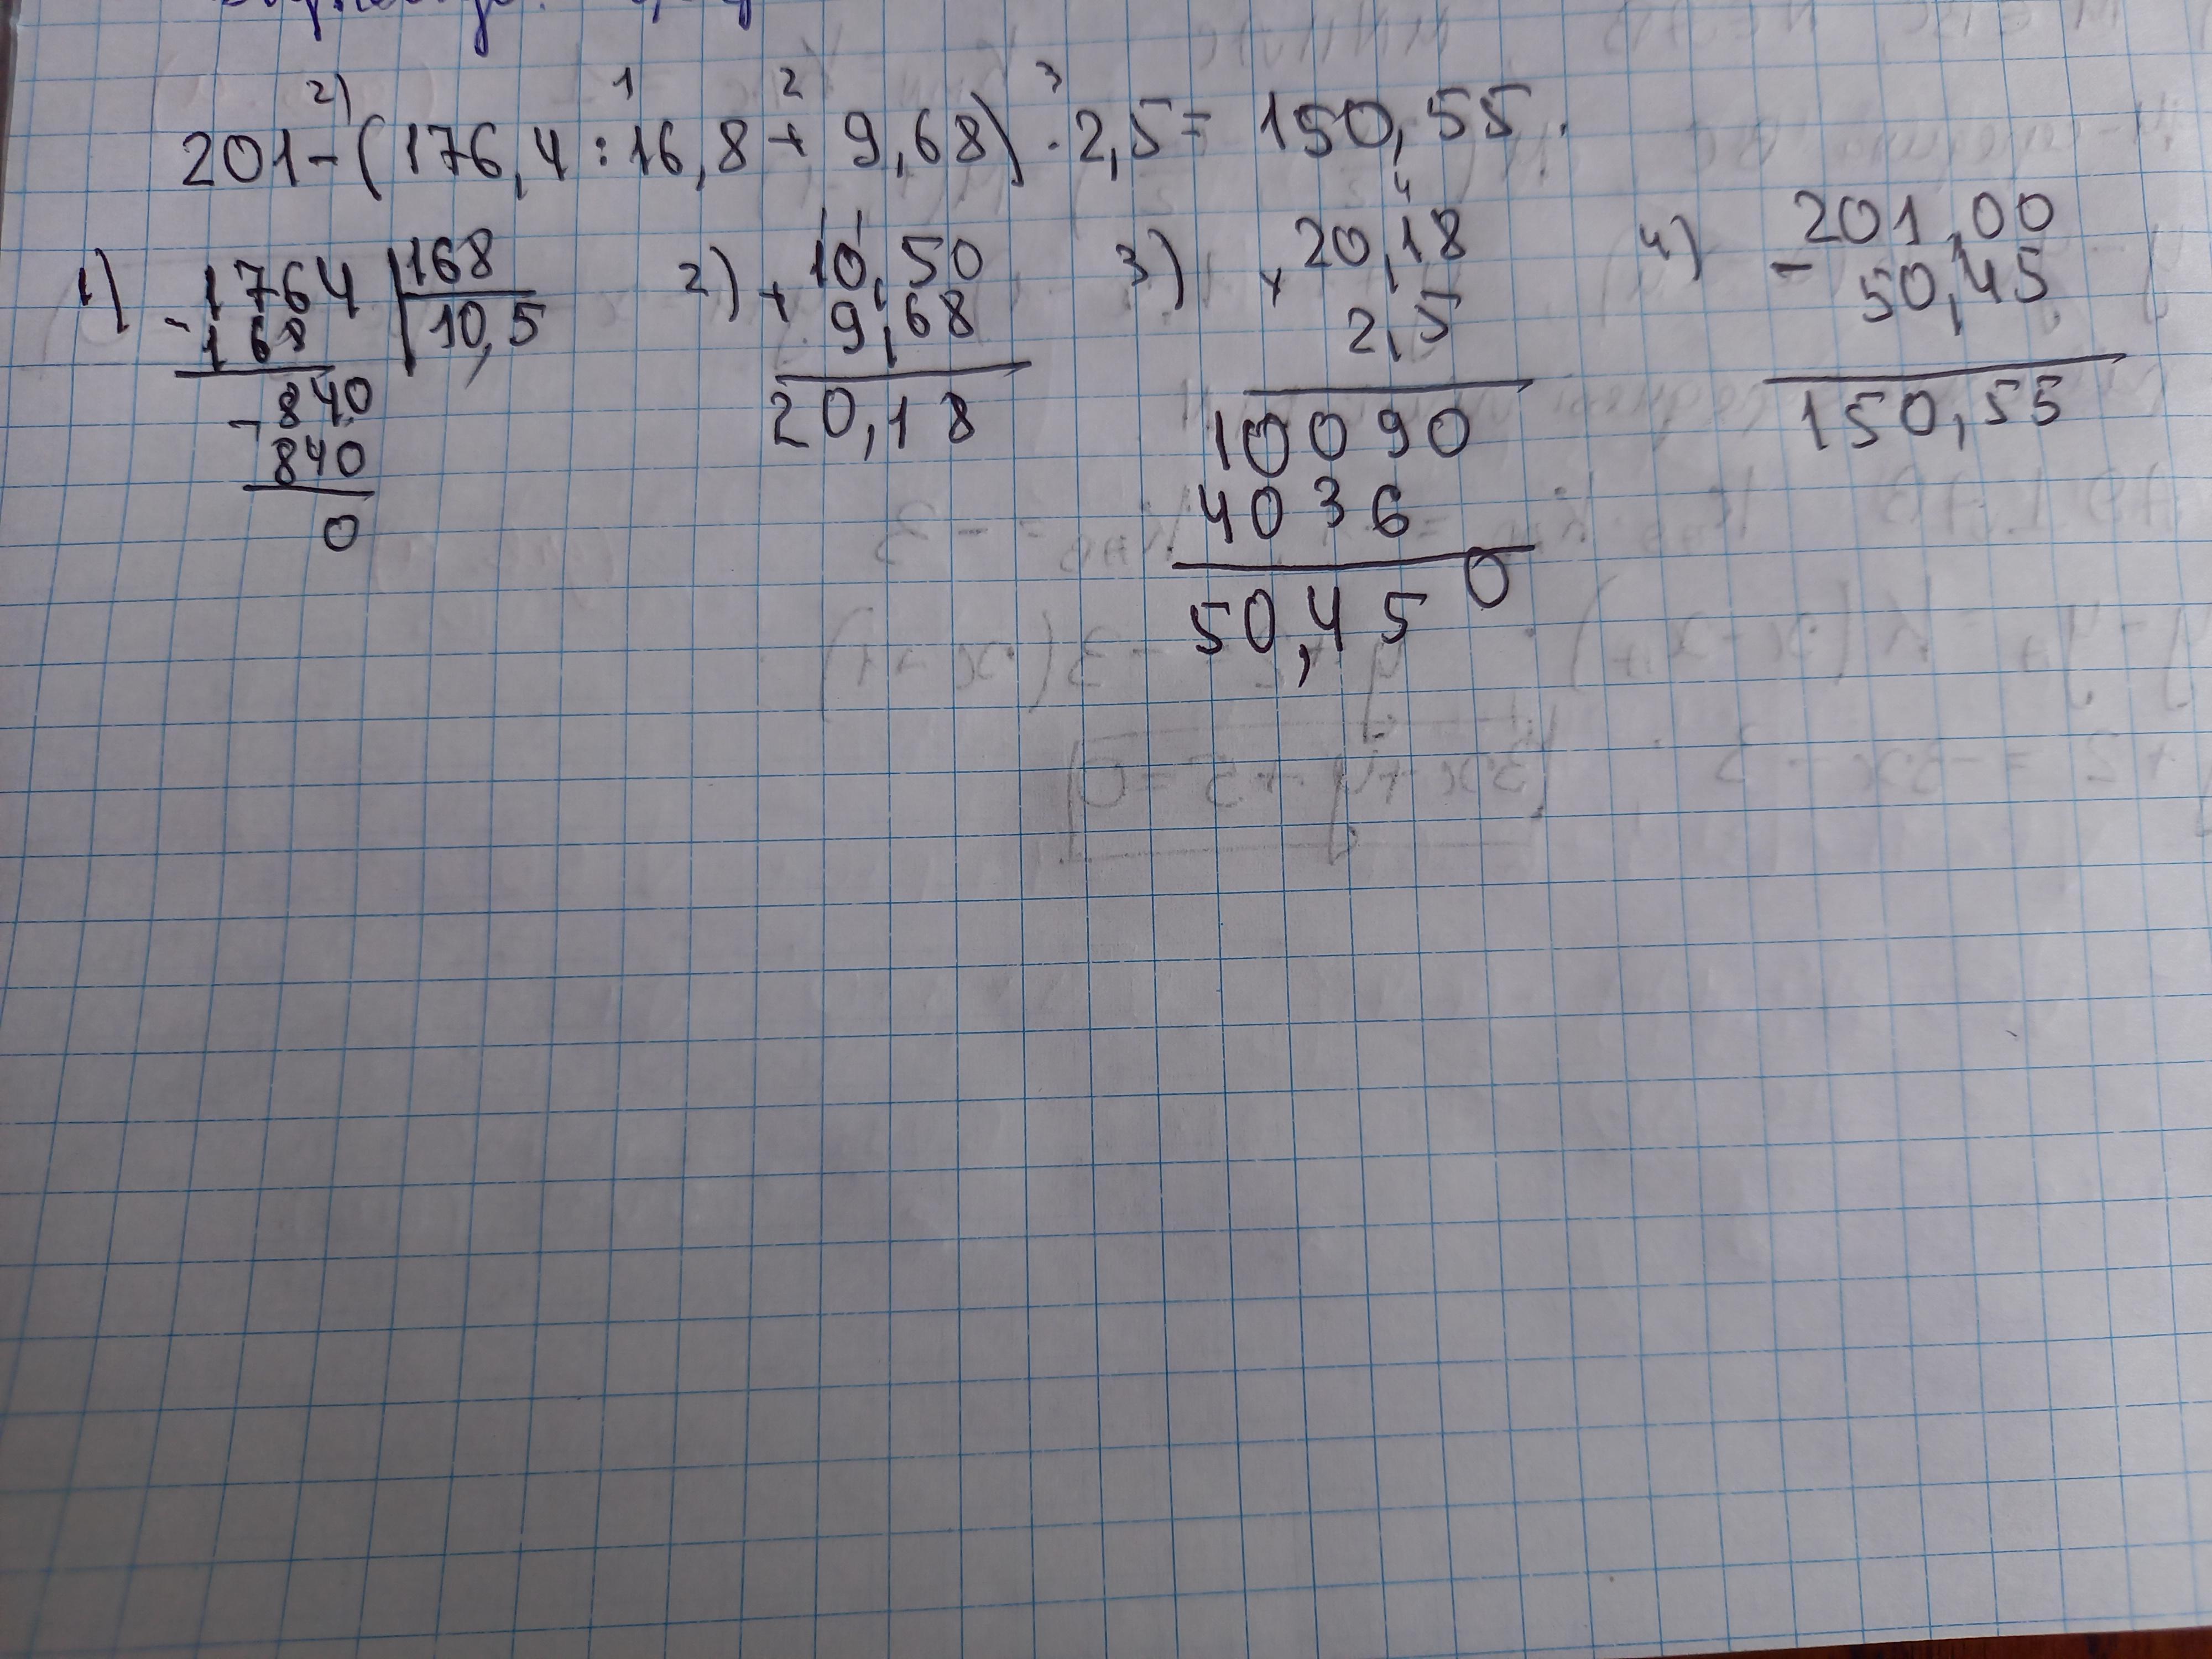 2) 1 2 3
201-(176,4:16,8+9,68)·2,5=150,55.
1) 1764 |168
-168 |10,5
-840
840
0
2) 10,50
+ 9,68
20,18
3) 20,18
× 2,5
10090
4036
50,450
4) 201,00
- 50,45
150,55